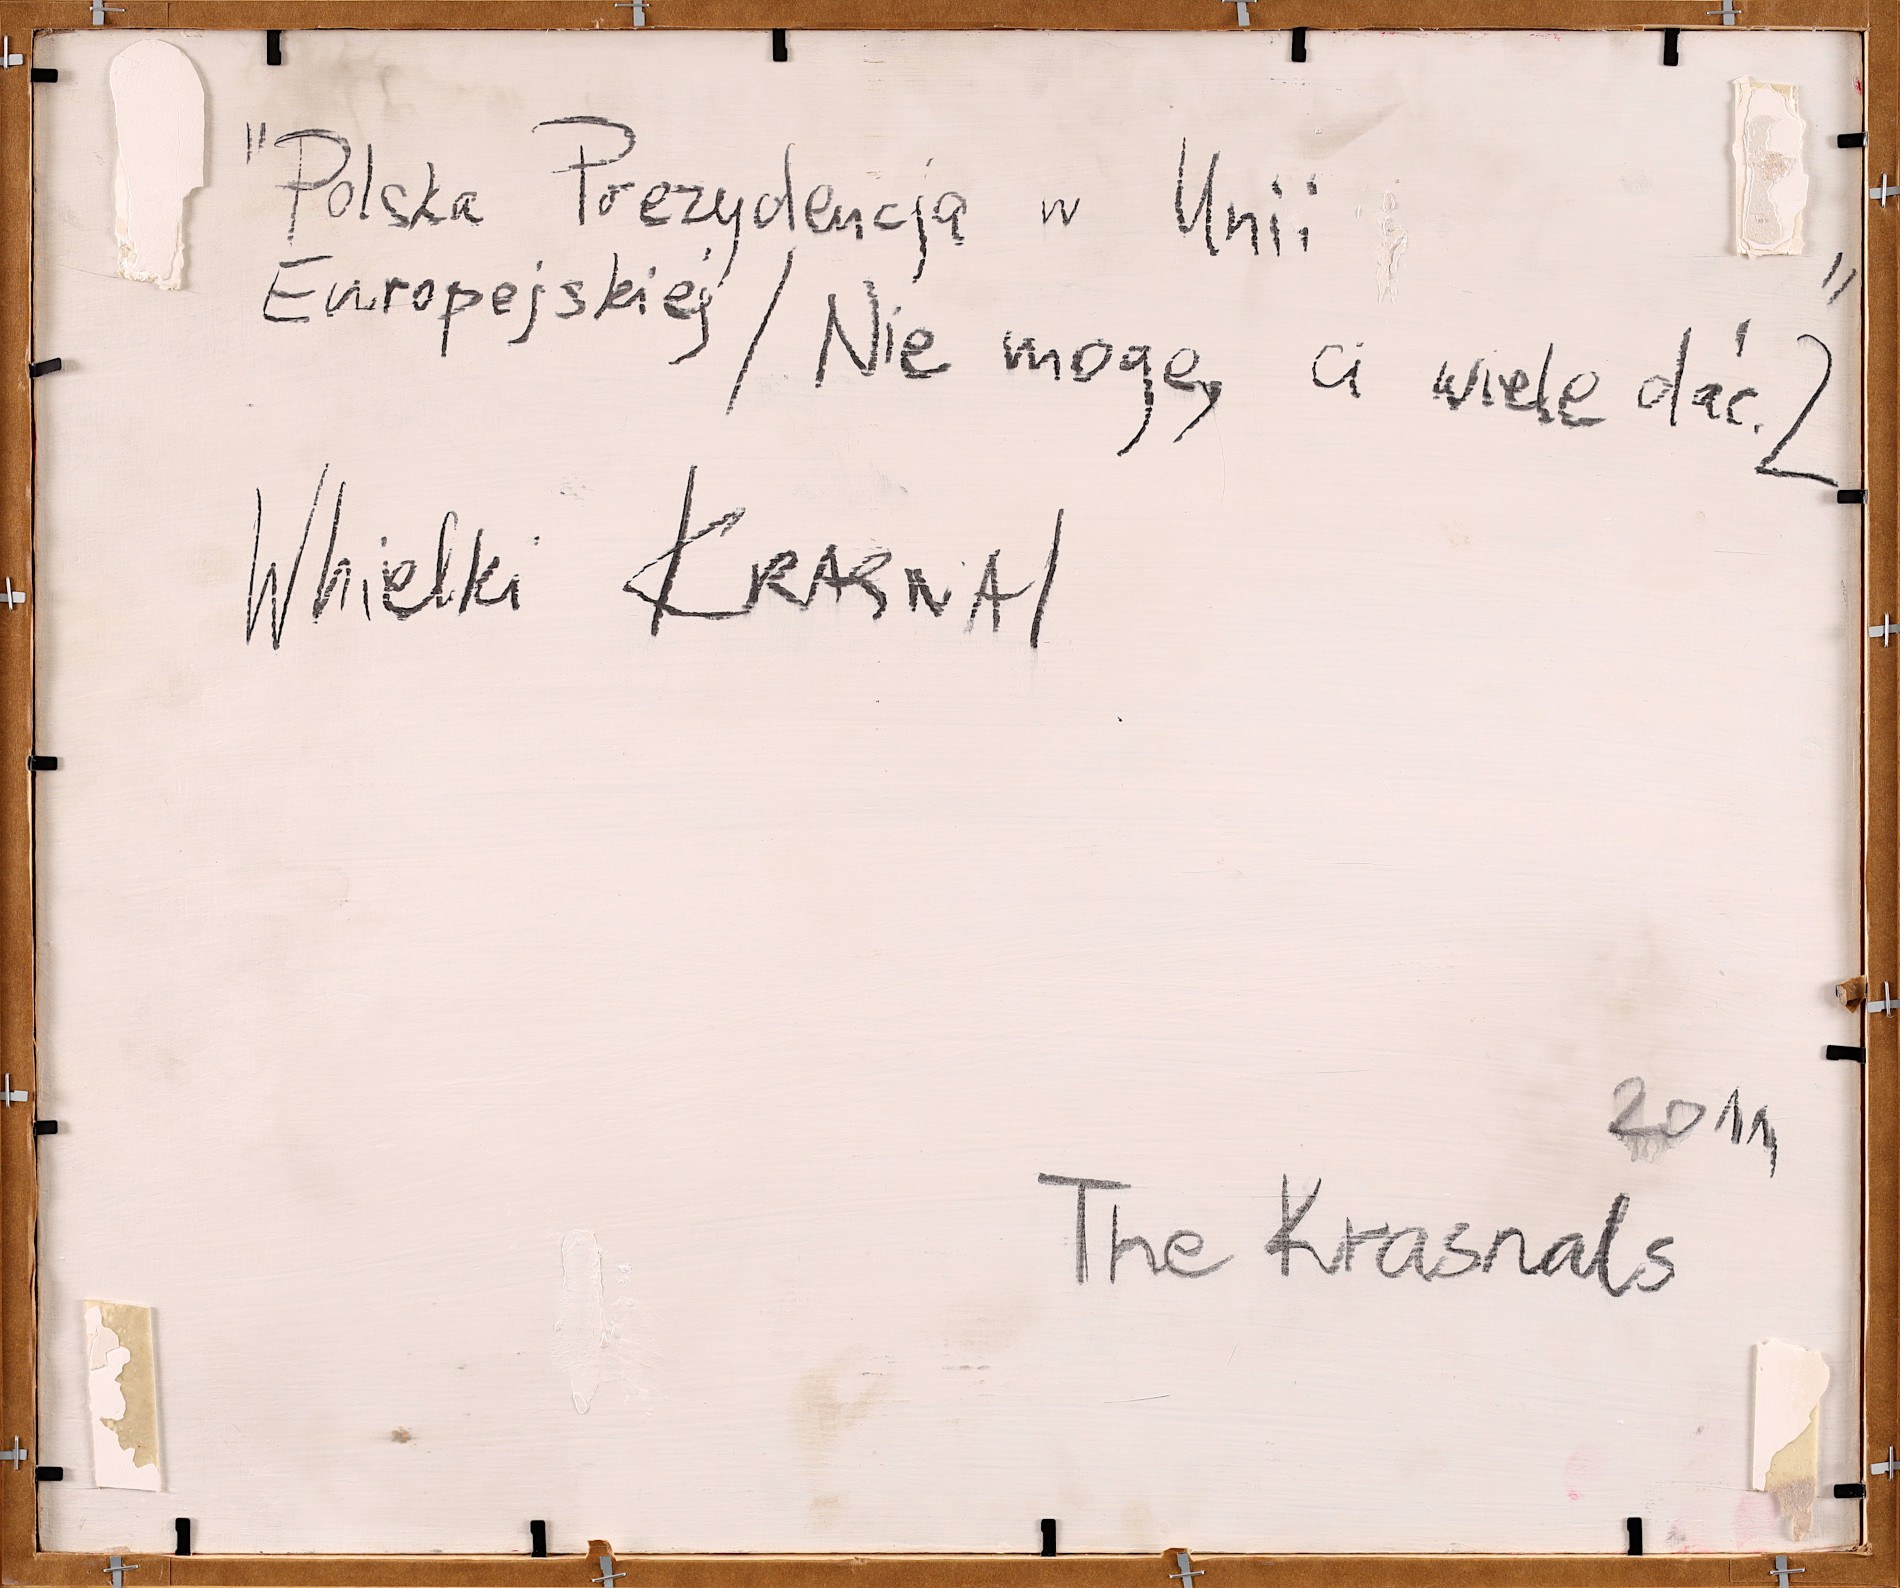 "Polska Prezydencja w Unii
Europejskiej / Nie mogę ci wiele dać. 2"
Whielki KRASNAl
2011
The Krasnals